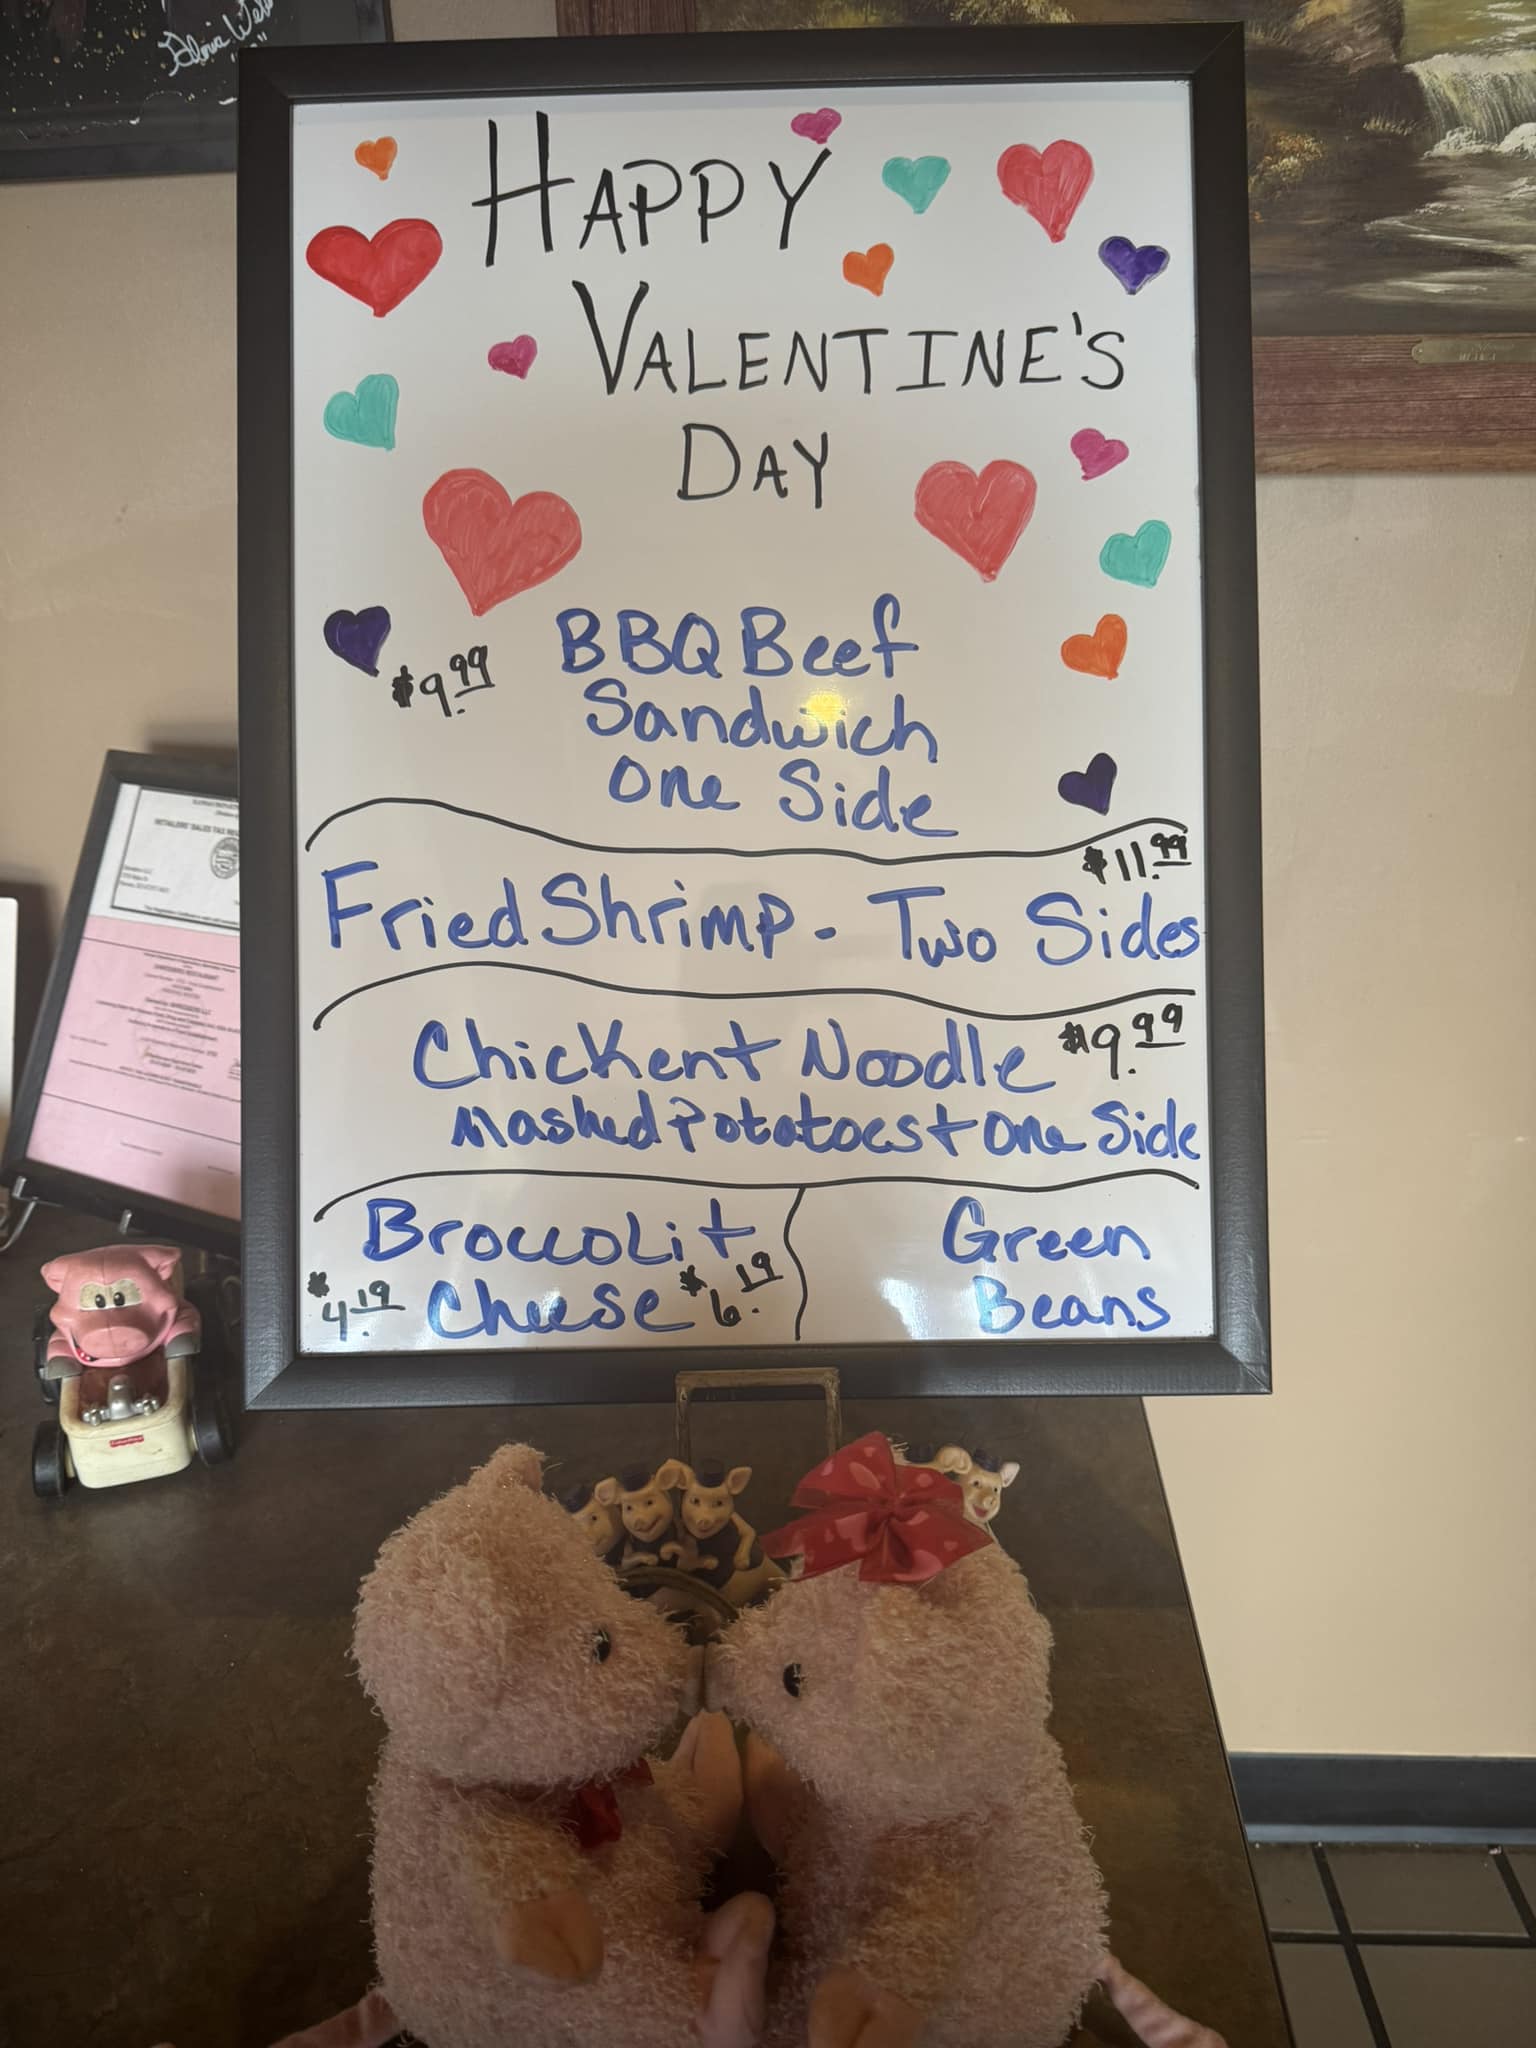 HAPPY
VALENTINE'S
DAY
$9.99 BBQ Beef
Sandwich
One Side
$11.99
Fried Shrimp - Two Sides
Chicken + Noodle $9.99
Mashed Potatoes + One Side
Broccoli +
$4.19 Cheese $6.19
Green
Beans
Fisher-Price